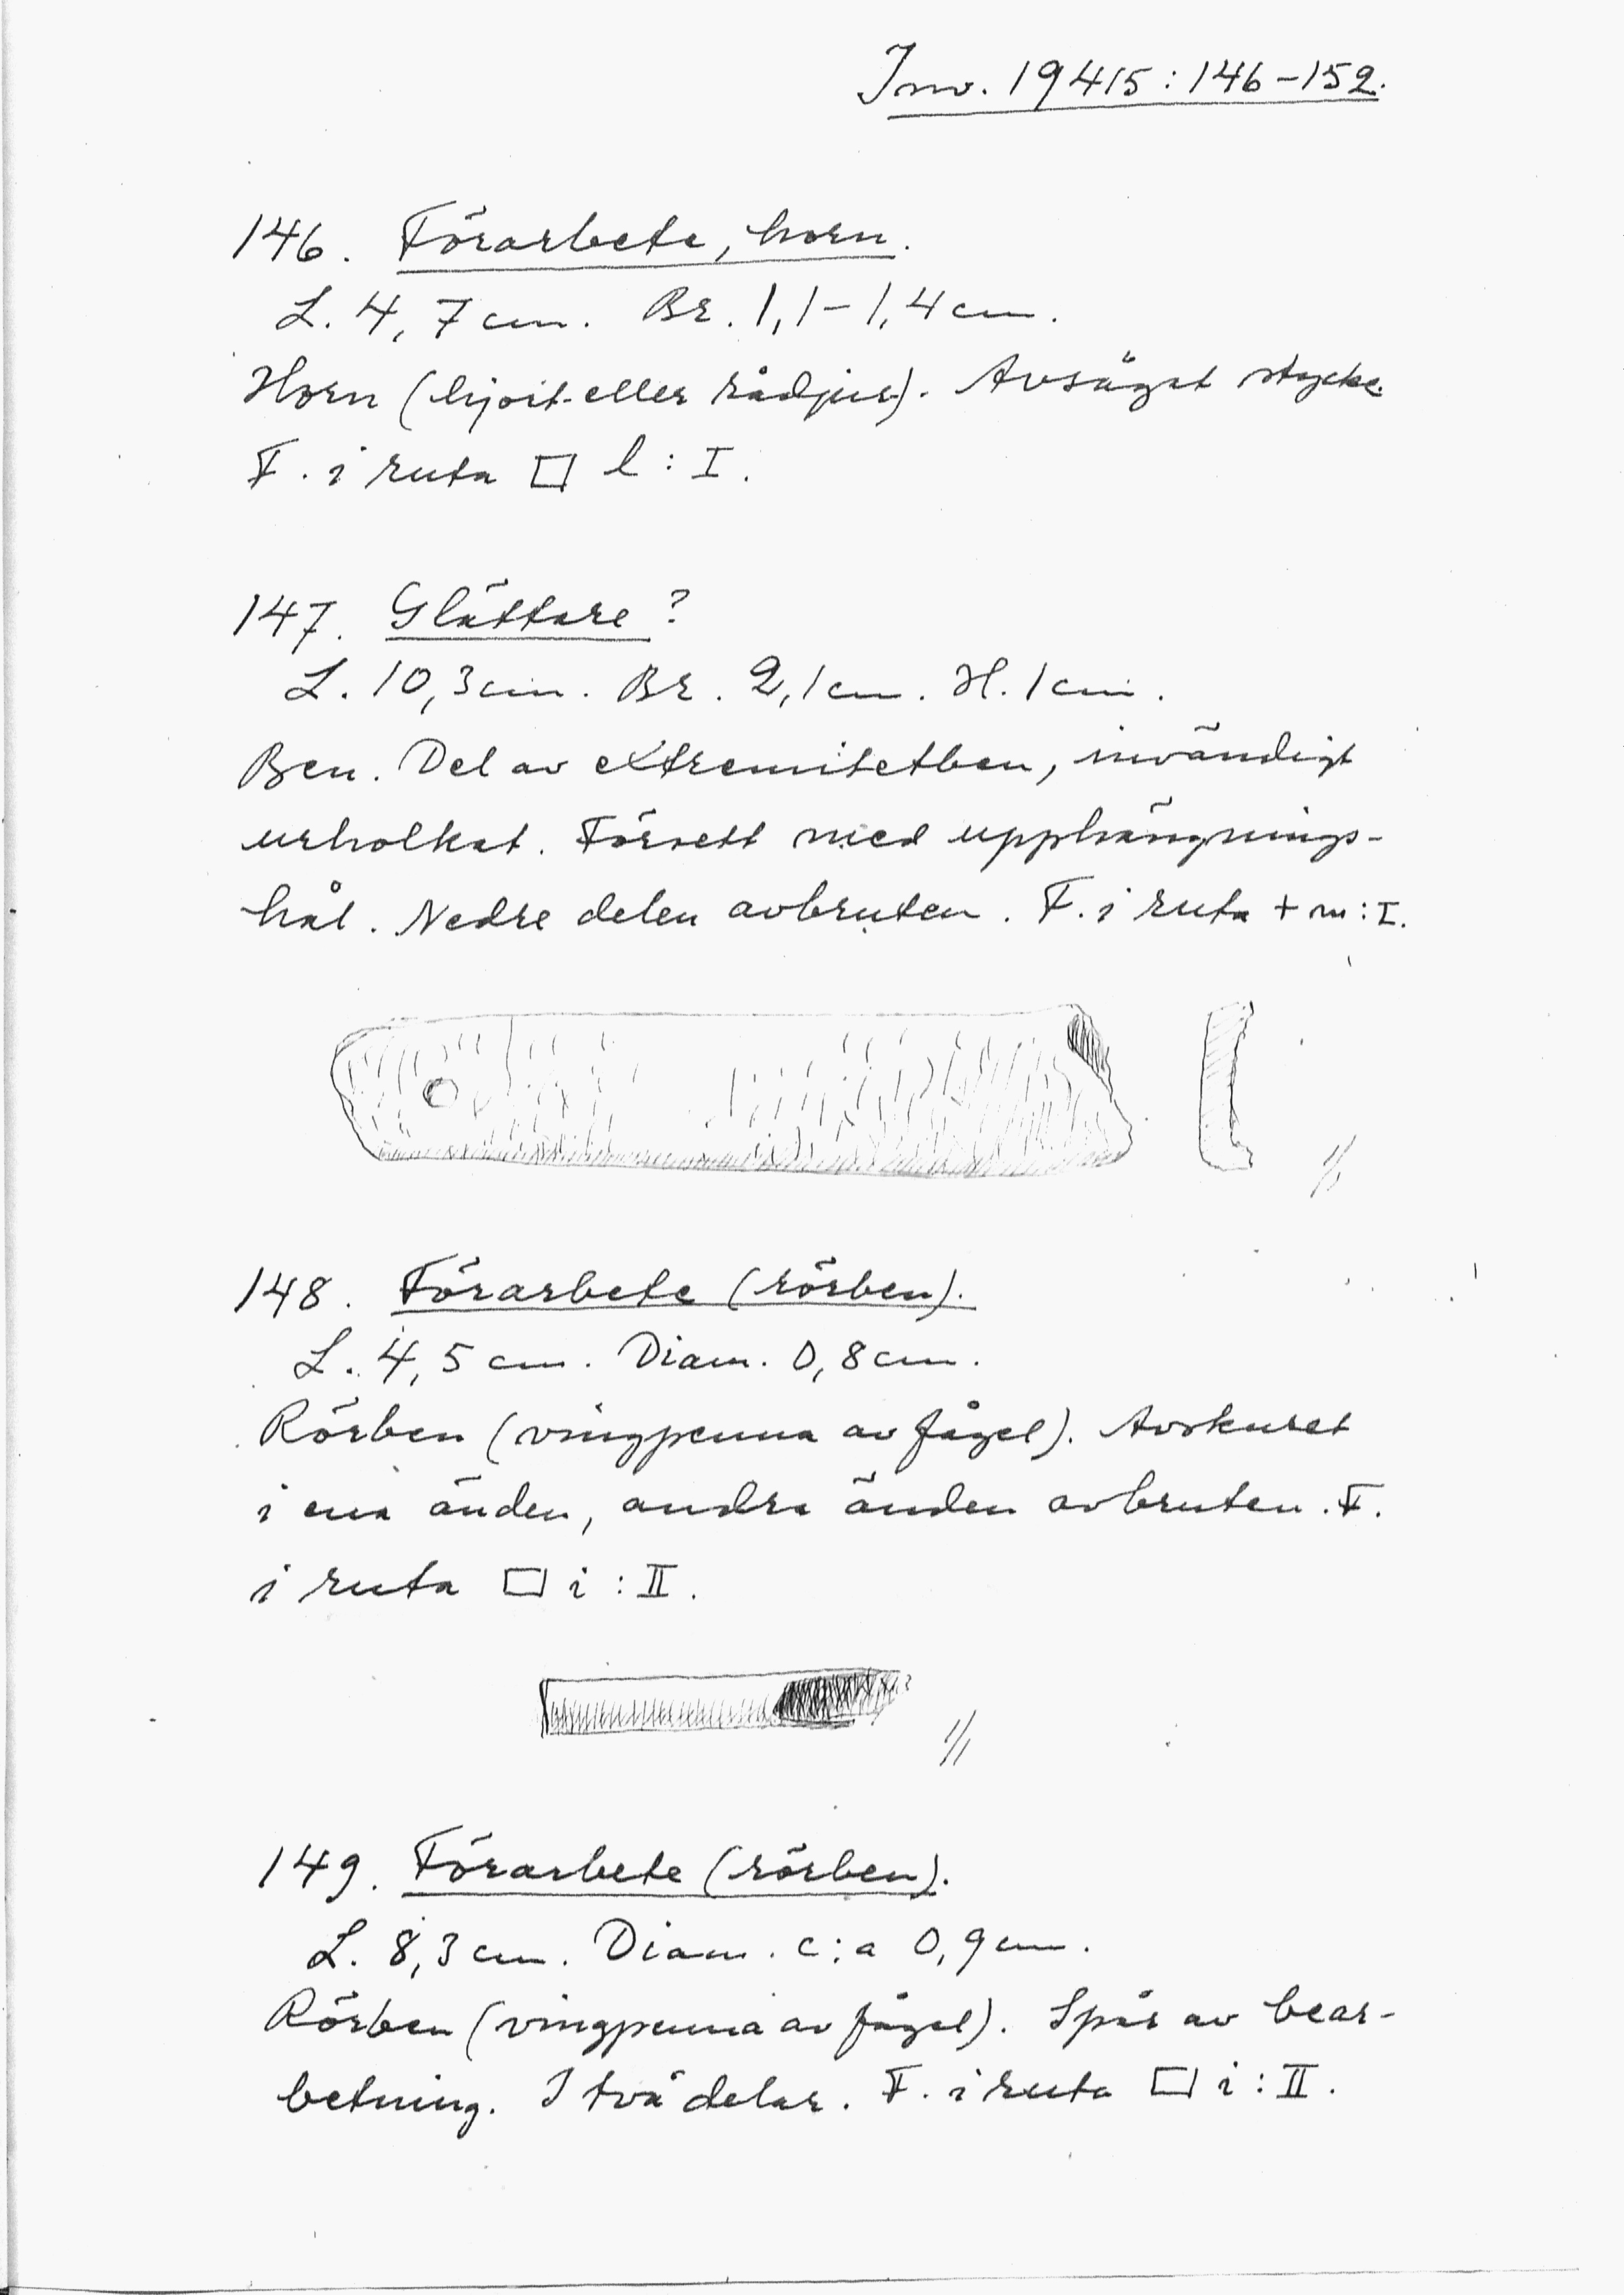 Inv. 19415:146-152.
146. Förarbete, horn.
L. 4,7 cm. Br. 1,1-1,4 cm.
Horn (hjort- eller rådjur). Avsågat stycke.
F. i ruta □ l:I.
147. Glättare?
L. 10,3 cm. Br. 2,1 cm. H. 1 cm.
Ben. Del av extremitetben, invändigt
urholkat. Försett med upphängnings-
hål. Nedre delen avbruten. F. i ruta + m:I.
1/1
148. Förarbete (rörben).
L. 4,5 cm. Diam. 0,8 cm.
Rörben (vingpenna av fågel). Avskuret
i ena änden, andra änden avbruten. F.
i ruta □ i:II.
1/1
149. Förarbete (rörben).
L. 8,3 cm. Diam. c:a 0,9 cm.
Rörben (vingpenna av fågel). Spår av bear-
betning. I två delar. F. i ruta □ i:II.